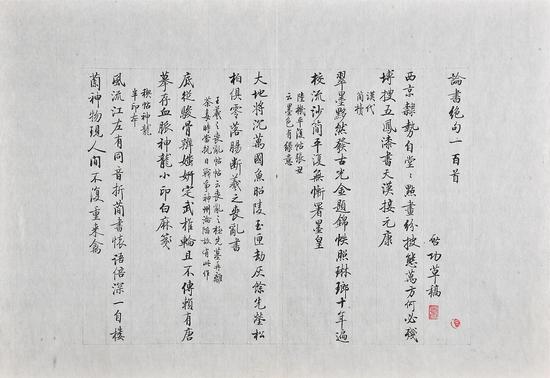 論書絕句一百首
啓功草稿
西京隸勢自堂〻點畫紛披態萬方何必殘
塼搜五鳳漆書天漢接元康
漢代
簡牘
翠墨黟然發古光金題錦帙照琳瑯十年遍
校流沙簡平復無慚署墨皇
陸機平復帖張丑
云墨色有綠意
大地將沉萬國魚昭陵玉匣劫灰餘先塋松
柏俱零落腸斷羲之喪亂書
王羲之喪亂帖帖云喪亂之極先墓再離
荼毒時當抗日戰爭神州淪陷故有此作
底從駿骨辨媸妍定武椎輪且不傳賴有唐
摹存血脈神龍小印白麻箋
禊帖神龍
半印本
風流江左有同音折簡書懷語倍深一自樓
蘭神物現人間不復重來禽